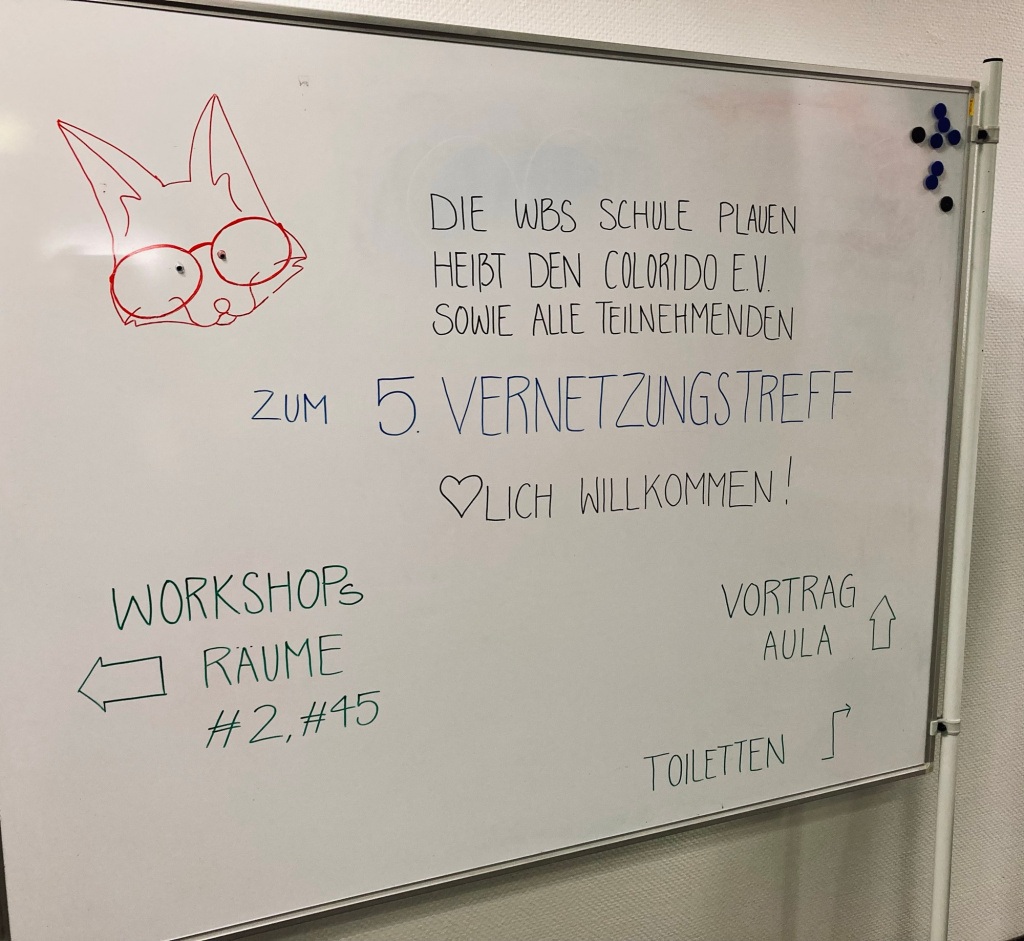 DIE WBS SCHULE PLAUEN
HEIẞT DEN COLORIDO E.V.
SOWIE ALLE TEILNEHMENDEN
ZUM 5. VERNETZUNGSTREFF
♡LICH WILLKOMMEN!
WORKSHOPs
RÄUME
#2, #45
VORTRAG
AULA
TOILETTEN